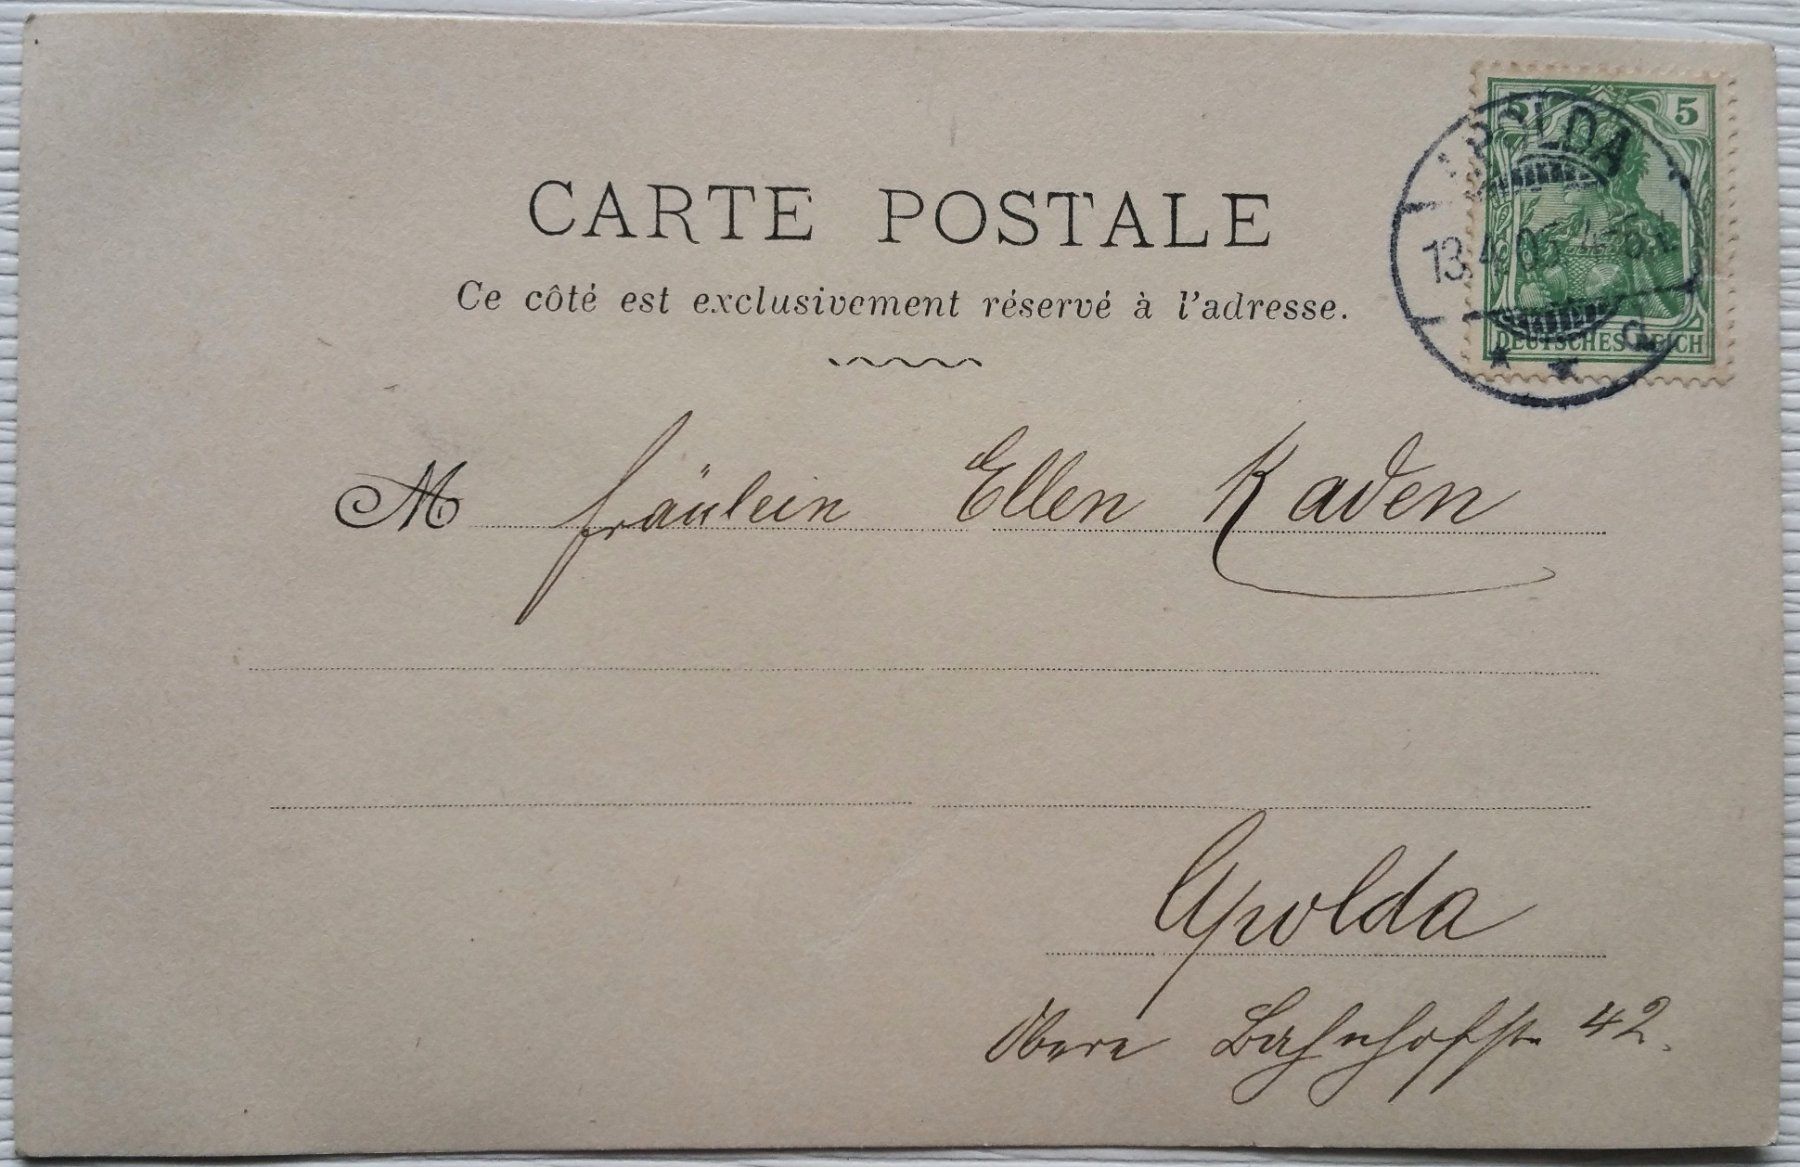 CARTE POSTALE
Ce côté est exclusivement réservé à l'adresse.
5
APOLDA
13.4.05. 4-5
d
DEUTSCHES REICH
M Fräulein Ellen Kaden
Apolda
Obere Bahnhofstr. 42.